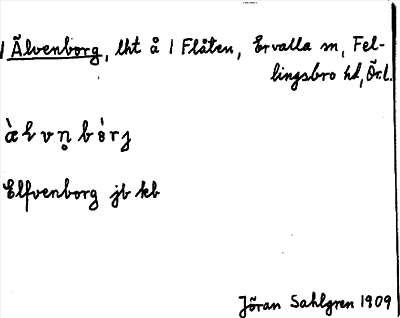 Älvenborg, lht å / Flåten, Ervalla sn, Fel-
lingsbro hd, Ör.l.
Elfvenborg jb kb
Jöran Sahlgren 1909